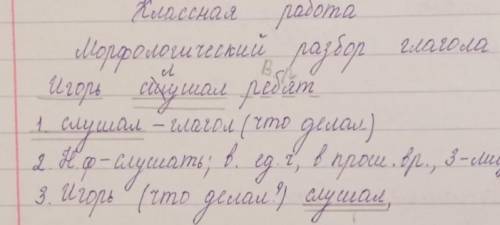 Классная работа
Морфологический разбор глагола
Игорь слушал ребят
1. слушал – глагол (что делал)
2. Н.ф – слушать; в. ед ч, в прош. вр., 3-лиц
3. Игорь (что делал?) слушал,